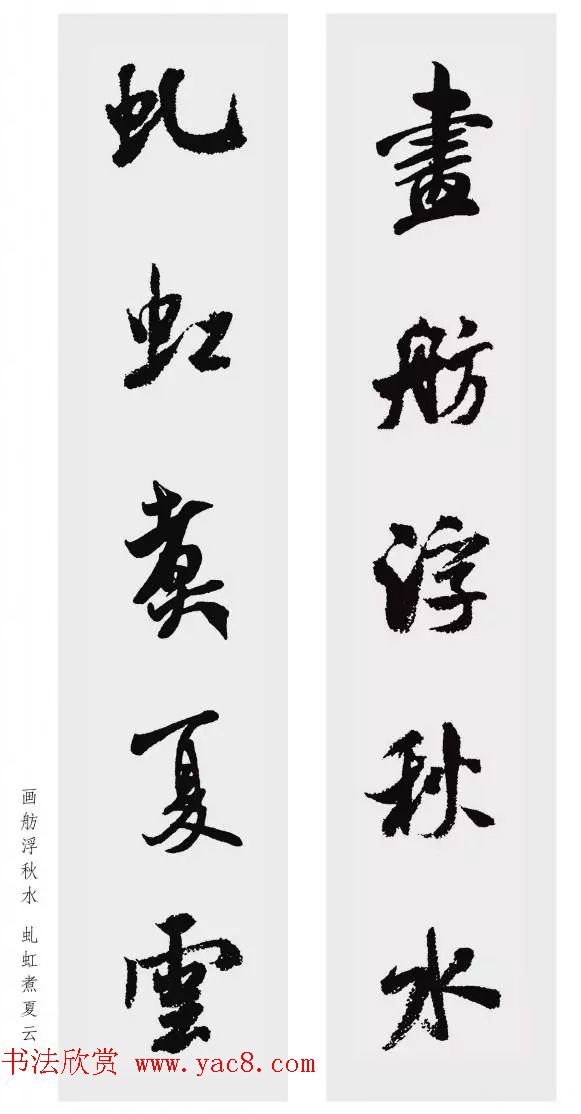 畫舫浮秋水
虬虹煮夏雲
画舫浮秋水 虬虹煮夏云
书法欣赏 www.yac8.com